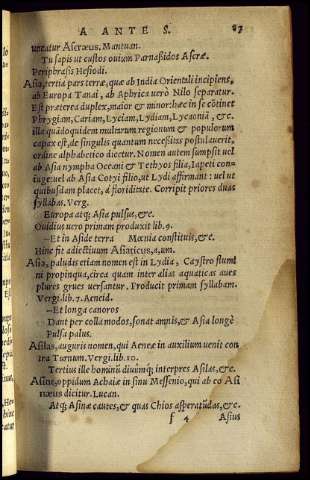 A ANTE S. 87
uocatur Ascræus. Mantuan.
Tu sapis ut custos ouium Parnaßidos Ascræ.
Periphrasis Hesiodi.
Asia, tertia pars terræ, quæ ab India Orientali incipiens,
ab Europa Tanai, ab Aphrica uerò Nilo separatur.
Est præterea duplex, maior & minor: hæc in se cõtinet
Phrygiam, Cariam, Lyciam, Lydiam, Lycaoniã, &c.
illa quòd quidem multarum regionum & populorum
capax est, de singulis quantum necesitas postulauerit,
ordine alphabetico dicetur. Nomen autem sumpsit uel
ab Asia nympha Oceani & Tethyos filia, Iapeti con-
iuge: uel ab Asio Cotyi filio, ut Lydi affirmant: uel ut
quibusdam placet, à Corripit priores duas
syllabas. Verg.
Europa atq; Asia pulsus, &c.
Ouidius uero primam produxit lib. 9.
—Et in Aside terra Mœnia constituis, &c.
Hinc fit adiectiuum Asiaticus, a, um.
Asia, paludis etiam nomen est in Lydia, Caystro flumi
ni propinqua, circa quam inter alias aquaticas aues
plures grues uersantur. Producit primam syllabam.
Vergi. lib. 7. Aeneid.
—Et longa canoros
Dant per colla modos, sonat amnis, & Asia longè
Pulsa palus.
Asilas, auguris nomen, qui Aeneæ in auxilium uenit con
tra Turnum. Vergi. lib. 10.
Tertius ille hominũ diuûmq; interpres Asilas, &c.
Asine, oppidum Achaiæ in sinu Messenio, qui ab eo Asi
næus dicitur. Lucan.
Atq; Asinæ cautes, & quas Chios asperat undas, &c.
f 4 Asius